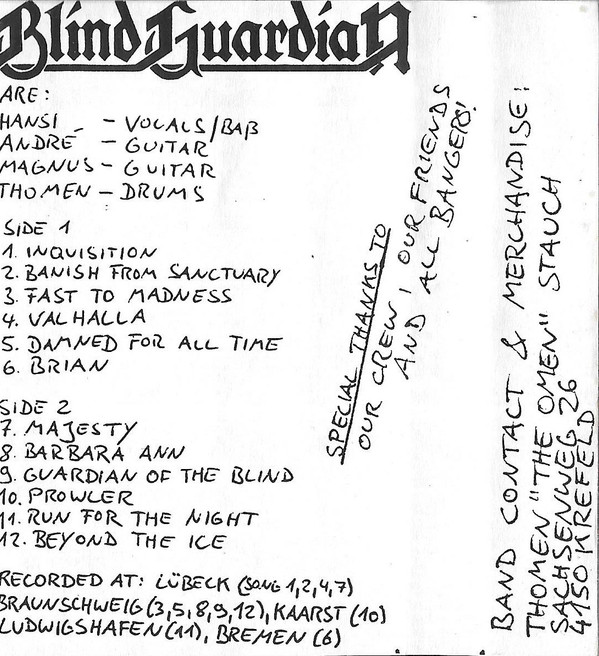 Blind Guardian
ARE:
HANSI - VOCALS/BAß
ANDRÉ - GUITAR
MAGNUS - GUITAR
THOMEN - DRUMS
SIDE 1
1. INQUISITION
2. BANISH FROM SANCTUARY
3. FAST TO MADNESS
4. VALHALLA
5. DAMNED FOR ALL TIME
6. BRIAN
SIDE 2
7. MAJESTY
8. BARBARA ANN
9. GUARDIAN OF THE BLIND
10. PROWLER
11. RUN FOR THE NIGHT
12. BEYOND THE ICE
RECORDED AT: LÜBECK (SONG 1,2,4,7)
BRAUNSCHWEIG (3,5,8,9,12), KAARST (10)
LUDWIGSHAFEN (11), BREMEN (6)
SPECIAL THANKS TO
OUR CREW, OUR FRIENDS
AND ALL BANGERS!
BAND CONTACT & MERCHANDISE:
THOMEN "THE OMEN" STAUCH
SACHSENWEG 26
4150 KREFELD